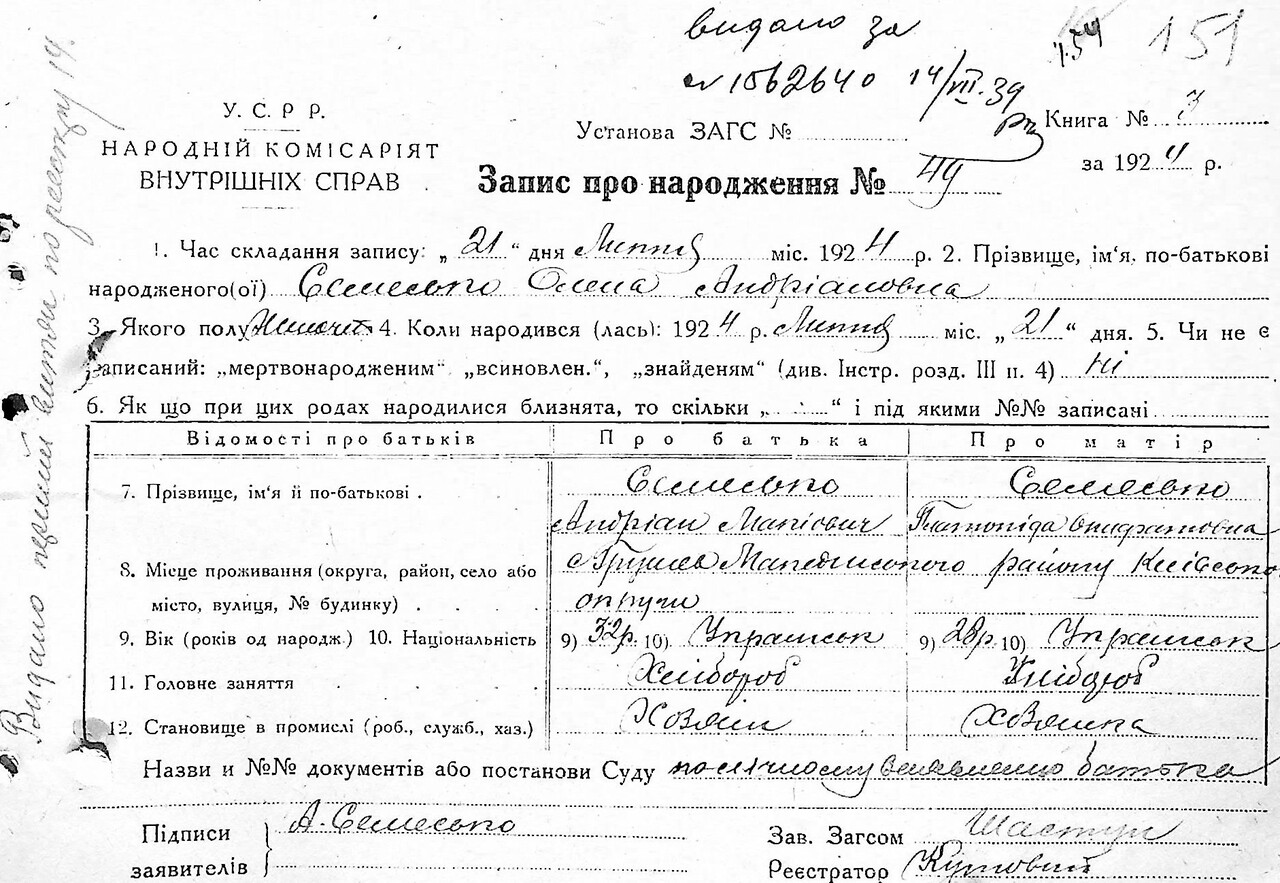 видано за
№ 1562640 14/VII-39
151
У. С. Р. Р.
НАРОДНІЙ КОМІСАРІЯТ
ВНУТРІШНІХ СПРАВ
Установа ЗАГС №
Книга № 3
за 1924 р.
Запис про народження № 49
1. Час складання запису: „ 21 “ дня Липня міс. 1924 р. 2. Прізвище, ім'я, по-батькові
народженого(ої) Семесько Олена Андріановна
3. Якого полу Жіночет 4. Коли народився (лась): 1924 р. Липня міс. „ 21 “ дня. 5. Чи не є
записаний: „мертвонародженим“ „всиновлен.“, „знайденям“ (див. Інстр. розд. III п. 4) ні
6. Як що при цих родах народилися близнята, то скільки „ “ і під якими №№ записані
Відомості про батьків Про батька Про матір
7. Прізвище, ім'я й по-батькові . Семесько Семесько
Андріан
8. Місце проживання (округа, район, село або району Київсько
місто, вулиця, № будинку) . . . . округи
9. Вік (років од народж.) 10. Національність 9) 32р. 10) Українськ 9) 28р. 10) Українськ
11. Головне заняття . . . . Хлібороб Хлібороб
12. Становище в промислі (роб., служб., хаз.) Хозяїн Хозяйка
Назви и №№ документів або постанови Суду по заявленню батька
Підписи А. Семесько Зав. Загсом
заявителів Реєстратор Кутовий
Видано первий витяг по реєстру 14.